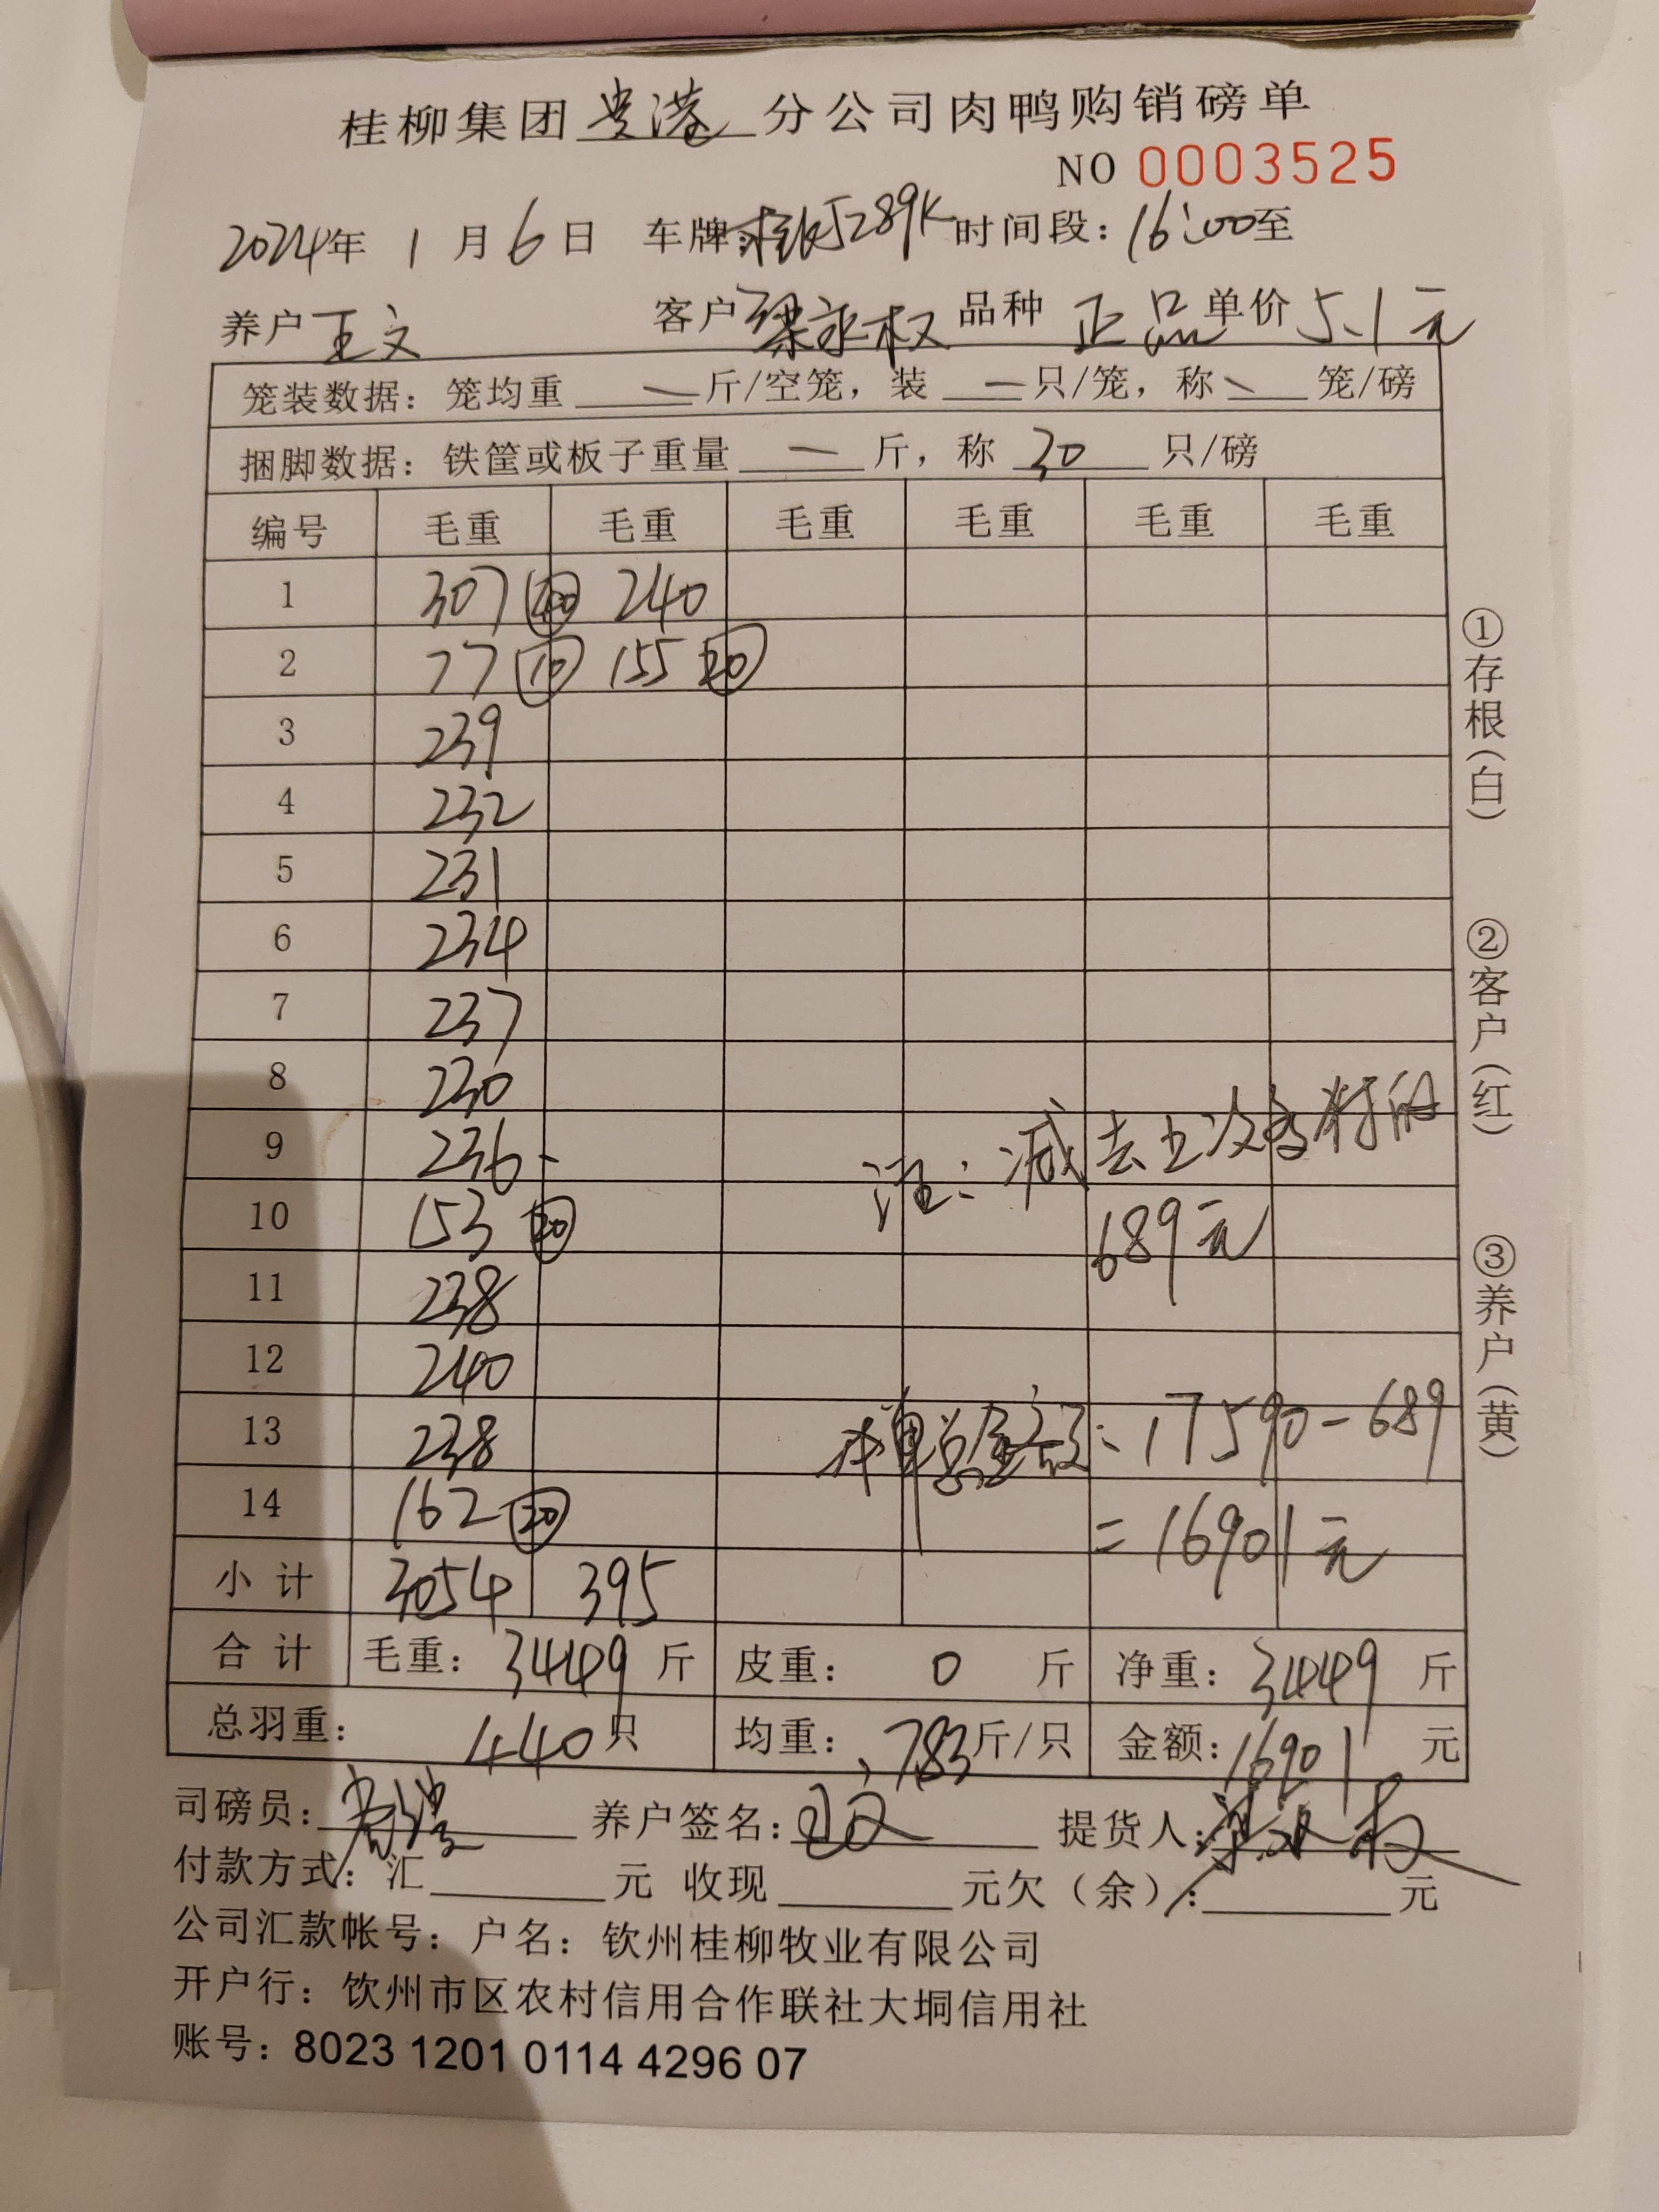 桂柳集团贵港分公司肉鸭购销磅单
NO 0003525
2024年 1月6日 车牌:桂KJ289K 时间段:16:00至
养户王文 客户梁永权 品种 正品 单价 5.1元
笼装数据:笼均重 — 斤/空笼,装 — 只/笼,称 — 笼/磅
捆脚数据:铁筐或板子重量 — 斤,称 30 只/磅
编号 毛重 毛重 毛重 毛重 毛重 毛重
1 307 40 240
2 77 10 155 20
3 239
4 232
5 231
6 234
7 237
8 230
9 236
10 153 20
11 238
12 240
13 238
14 162 20
注:减去上次多打的
689元
本单总金额:17590-689
=16901元
小计 3054 395
合计 毛重:3449斤 皮重:0斤 净重:3449斤
总羽重:440只 均重:7.83斤/只 金额:16901元
司磅员: 养户签名:王文 提货人:梁永权
付款方式:汇 元 收现 元欠(余): 元
公司汇款帐号:户名:钦州桂柳牧业有限公司
开户行:钦州市区农村信用合作联社大垌信用社
账号:8023 1201 0114 4296 07
①存根(白)
②客户(红)
③养户(黄)